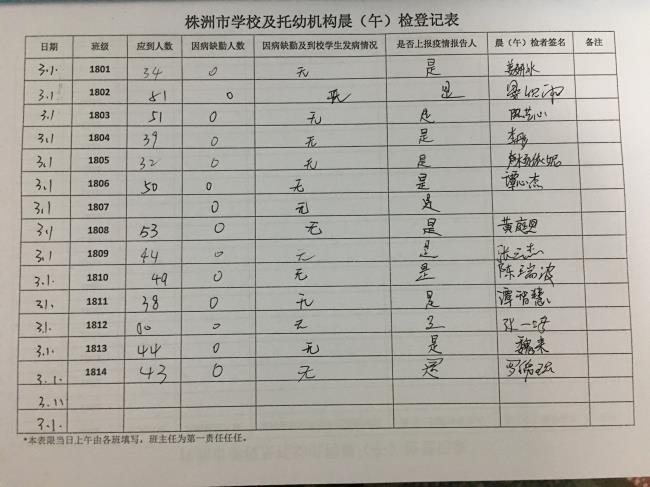 株洲市学校及托幼机构晨（午）检登记表
日期 班级 应到人数 因病缺勤人数 因病缺勤及到校学生发病情况 是否上报疫情报告人 晨（午）检者签名 备注
3.1. 1801 34 0 无 是
3.1 1802 51 0 无 是
3.1 1803 51 0 无 是
3.1 1804 39 0 无 是
3.1 1805 32 0 无 是
3.1 1806 50 0 无 是 谭心杰
3.1 1807 0 无 是
3.1 1808 53 0 无 是 黄庭恩
3.1 1809 44 0 无 是 张云杰
3.1. 1810 49 0 无 是 陈瑞波
3.1. 1811 38 0 无 是 谭智慧
3.1. 1812 0 无
3.1. 1813 44 0 无 是 魏来
3.1. 1814 43 0 无 是
3.11
3.1.
*本表限当日上午由各班填写，班主任为第一责任任任。